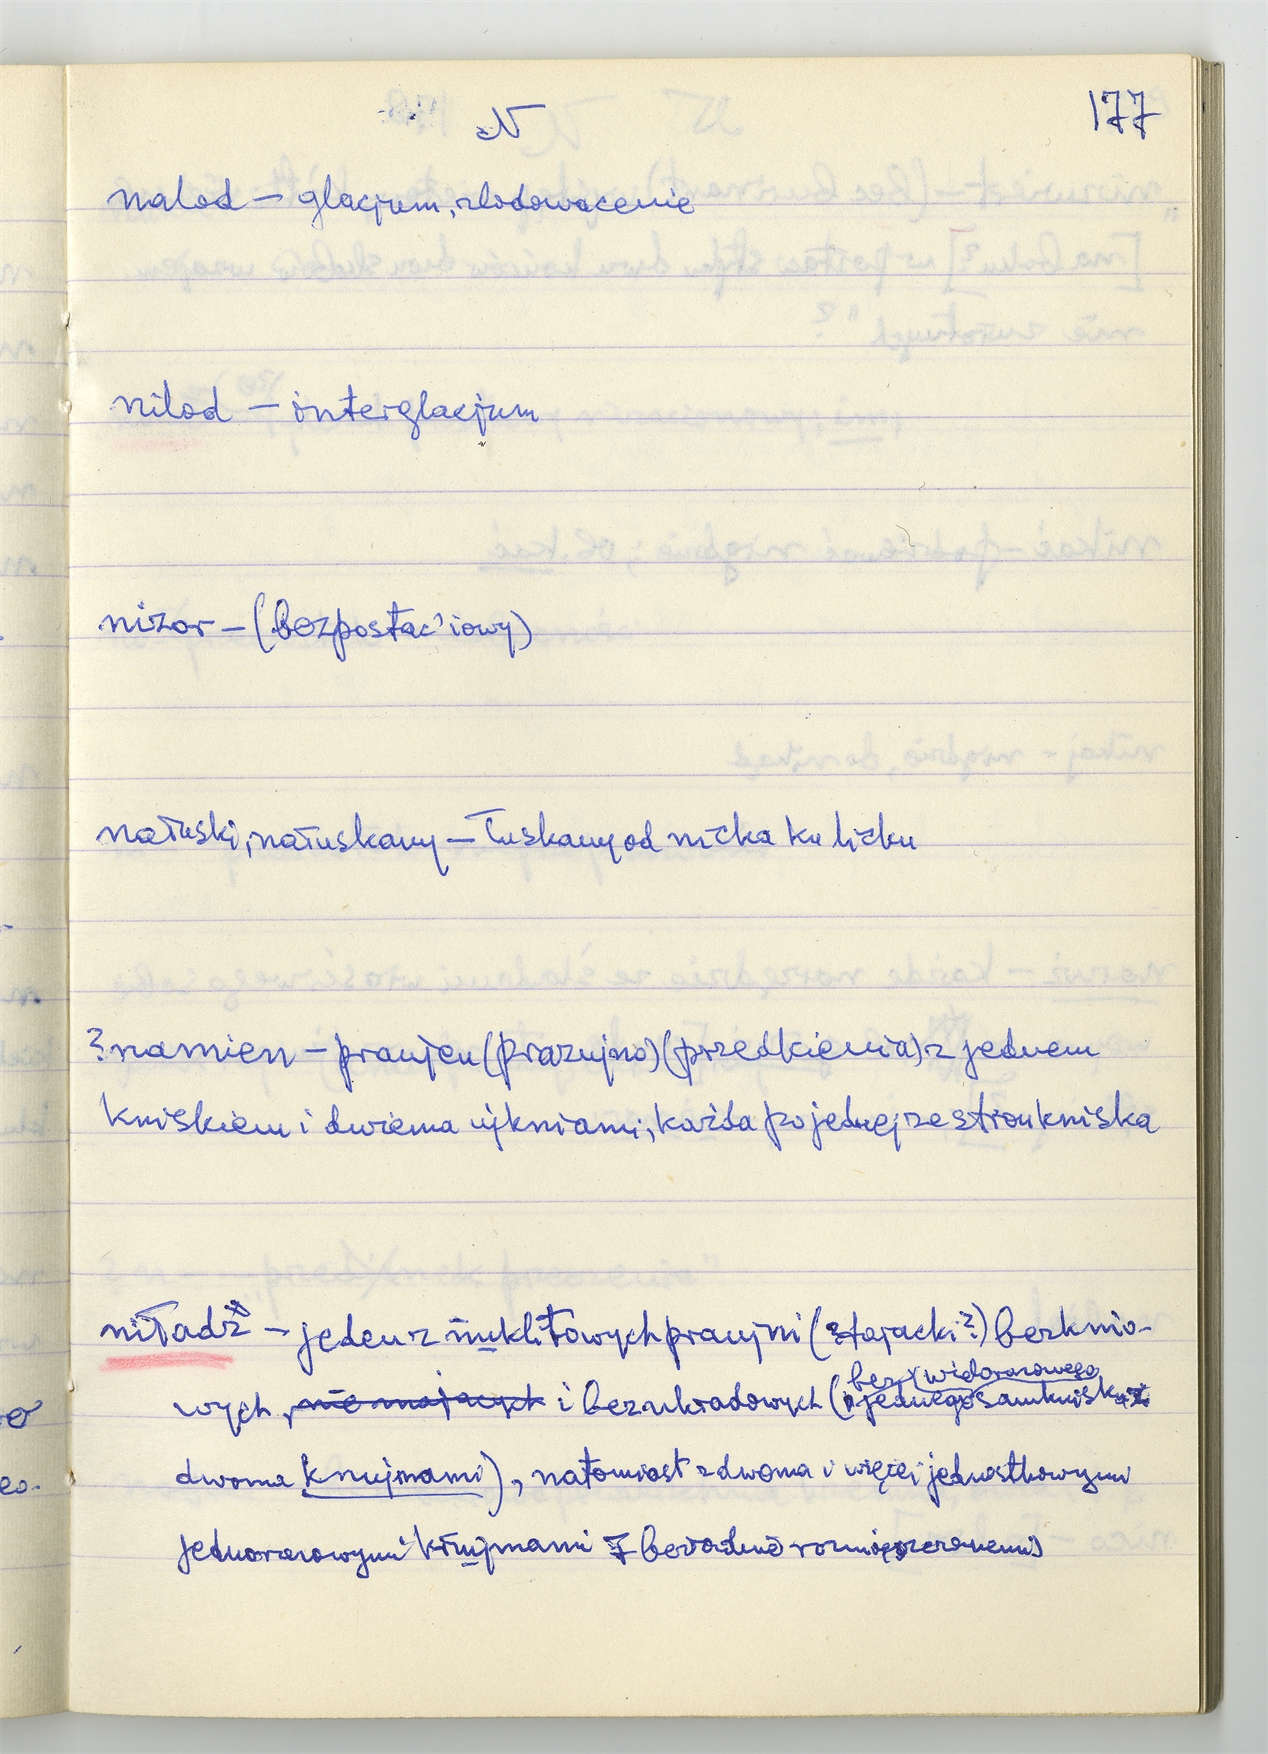 N
177
nalod – glacjum, zlodowacenie
nilod – interglacjum
nizor – (bezpostac'iowy)
natuski, natuskany – łuskany od nićka ku lićku
? namien – praujcu (prazujno) (przedkienia) z jednem
kniskiem i dwiema ujkniami, każda po jednej ze stron kniska
niładź – jeden z praujni ( ?) bezknio-
wych, nie mających i bezukradowych (
bez (widorazowego
jednego
dwoma knujmami), natomiast z dwoma i więcej jednostkowymi
jednorazowymi bezładnie rozmieszczonemi)